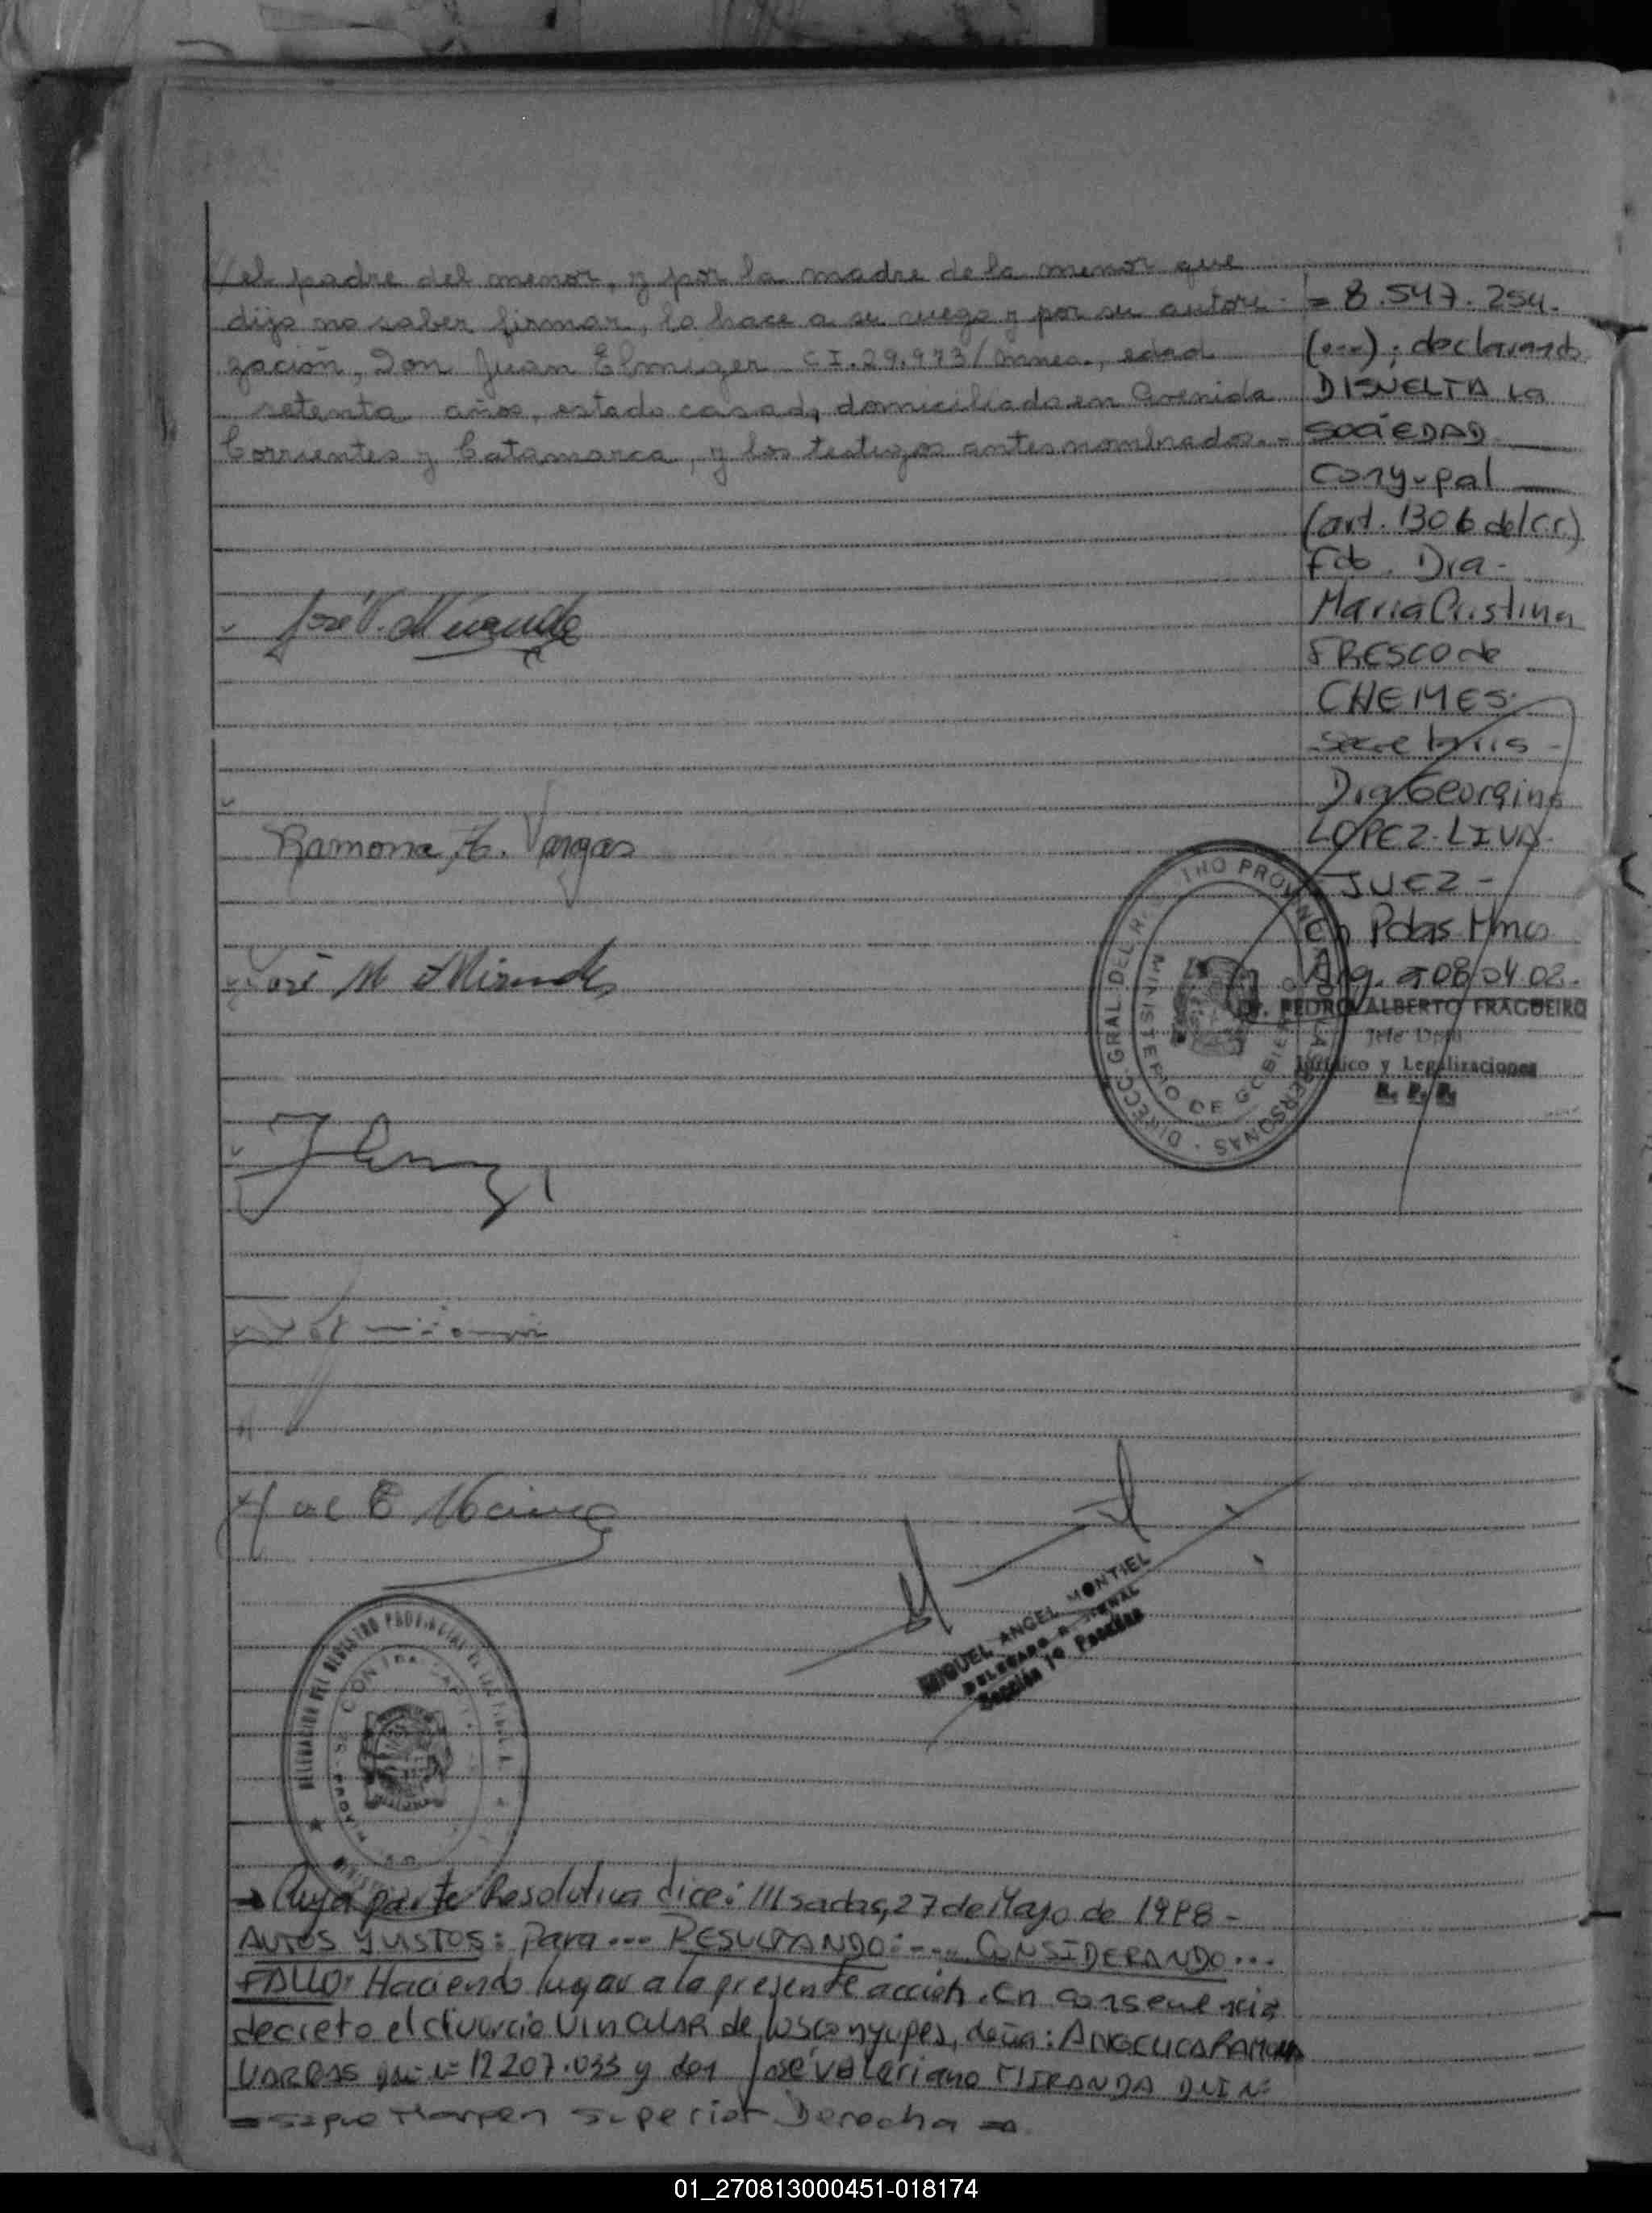 //el padre del menor, y por la madre de la menor que
dijo no saber firmar, lo hace a su ruego y por su autori-
zación, Don Juan Elmiger C.I.29.973/Mnes., edad
setenta años, estado casado, domiciliado en Avenida
Corrientes y Catamarca, y los testigos antes nominados.-
José V. Miranda
Ramona A. Vargas
José M Miranda
DELEGACION DEL REGISTRO PROVINCIAL DE LAS
MIGUEL ANGEL MONTIEL
DELEGADO
Sección 1a Posadas
→ Cuya parte Resolutiva dice: ///sadas, 27 de Mayo de 1988 -
AUTOS Y VISTOS: Para... RESULTANDO:-... CONSIDERANDO...
FALLO: Haciendo lugar a la presente acción. En consecuencia
decreto el divorcio VINCULAR de los conyuges, doña: ANGELICA RAMONA
VARGAS DNI Nº 12207.033 y don José Valeriano MIRANDA DNI Nº
= sigue Margen Superior Derecha =
= 8.547.254.
(...); declarando
DISUELTA LA
SOCIEDAD
Conyugal
(art. 1306 del C.C.)
Fdo. Dra.
Maria Cristina
FRESCO de
CHEMES.
Secretaria -
Dra Georgina
LOPEZ-LIVA-
JUEZ -
en Pdas Mnes
Arg. a 08/04/02.
DIRECC. GRAL DEL REGISTRO PROVINCIAL DE LAS PERSONAS
MINISTERIO DE GOBIERNO
Dr. PEDRO ALBERTO FRAGUEIRO
Jefe Dpto
Jurídico y Legalizaciones
R. P. P.
01_270813000451-018174